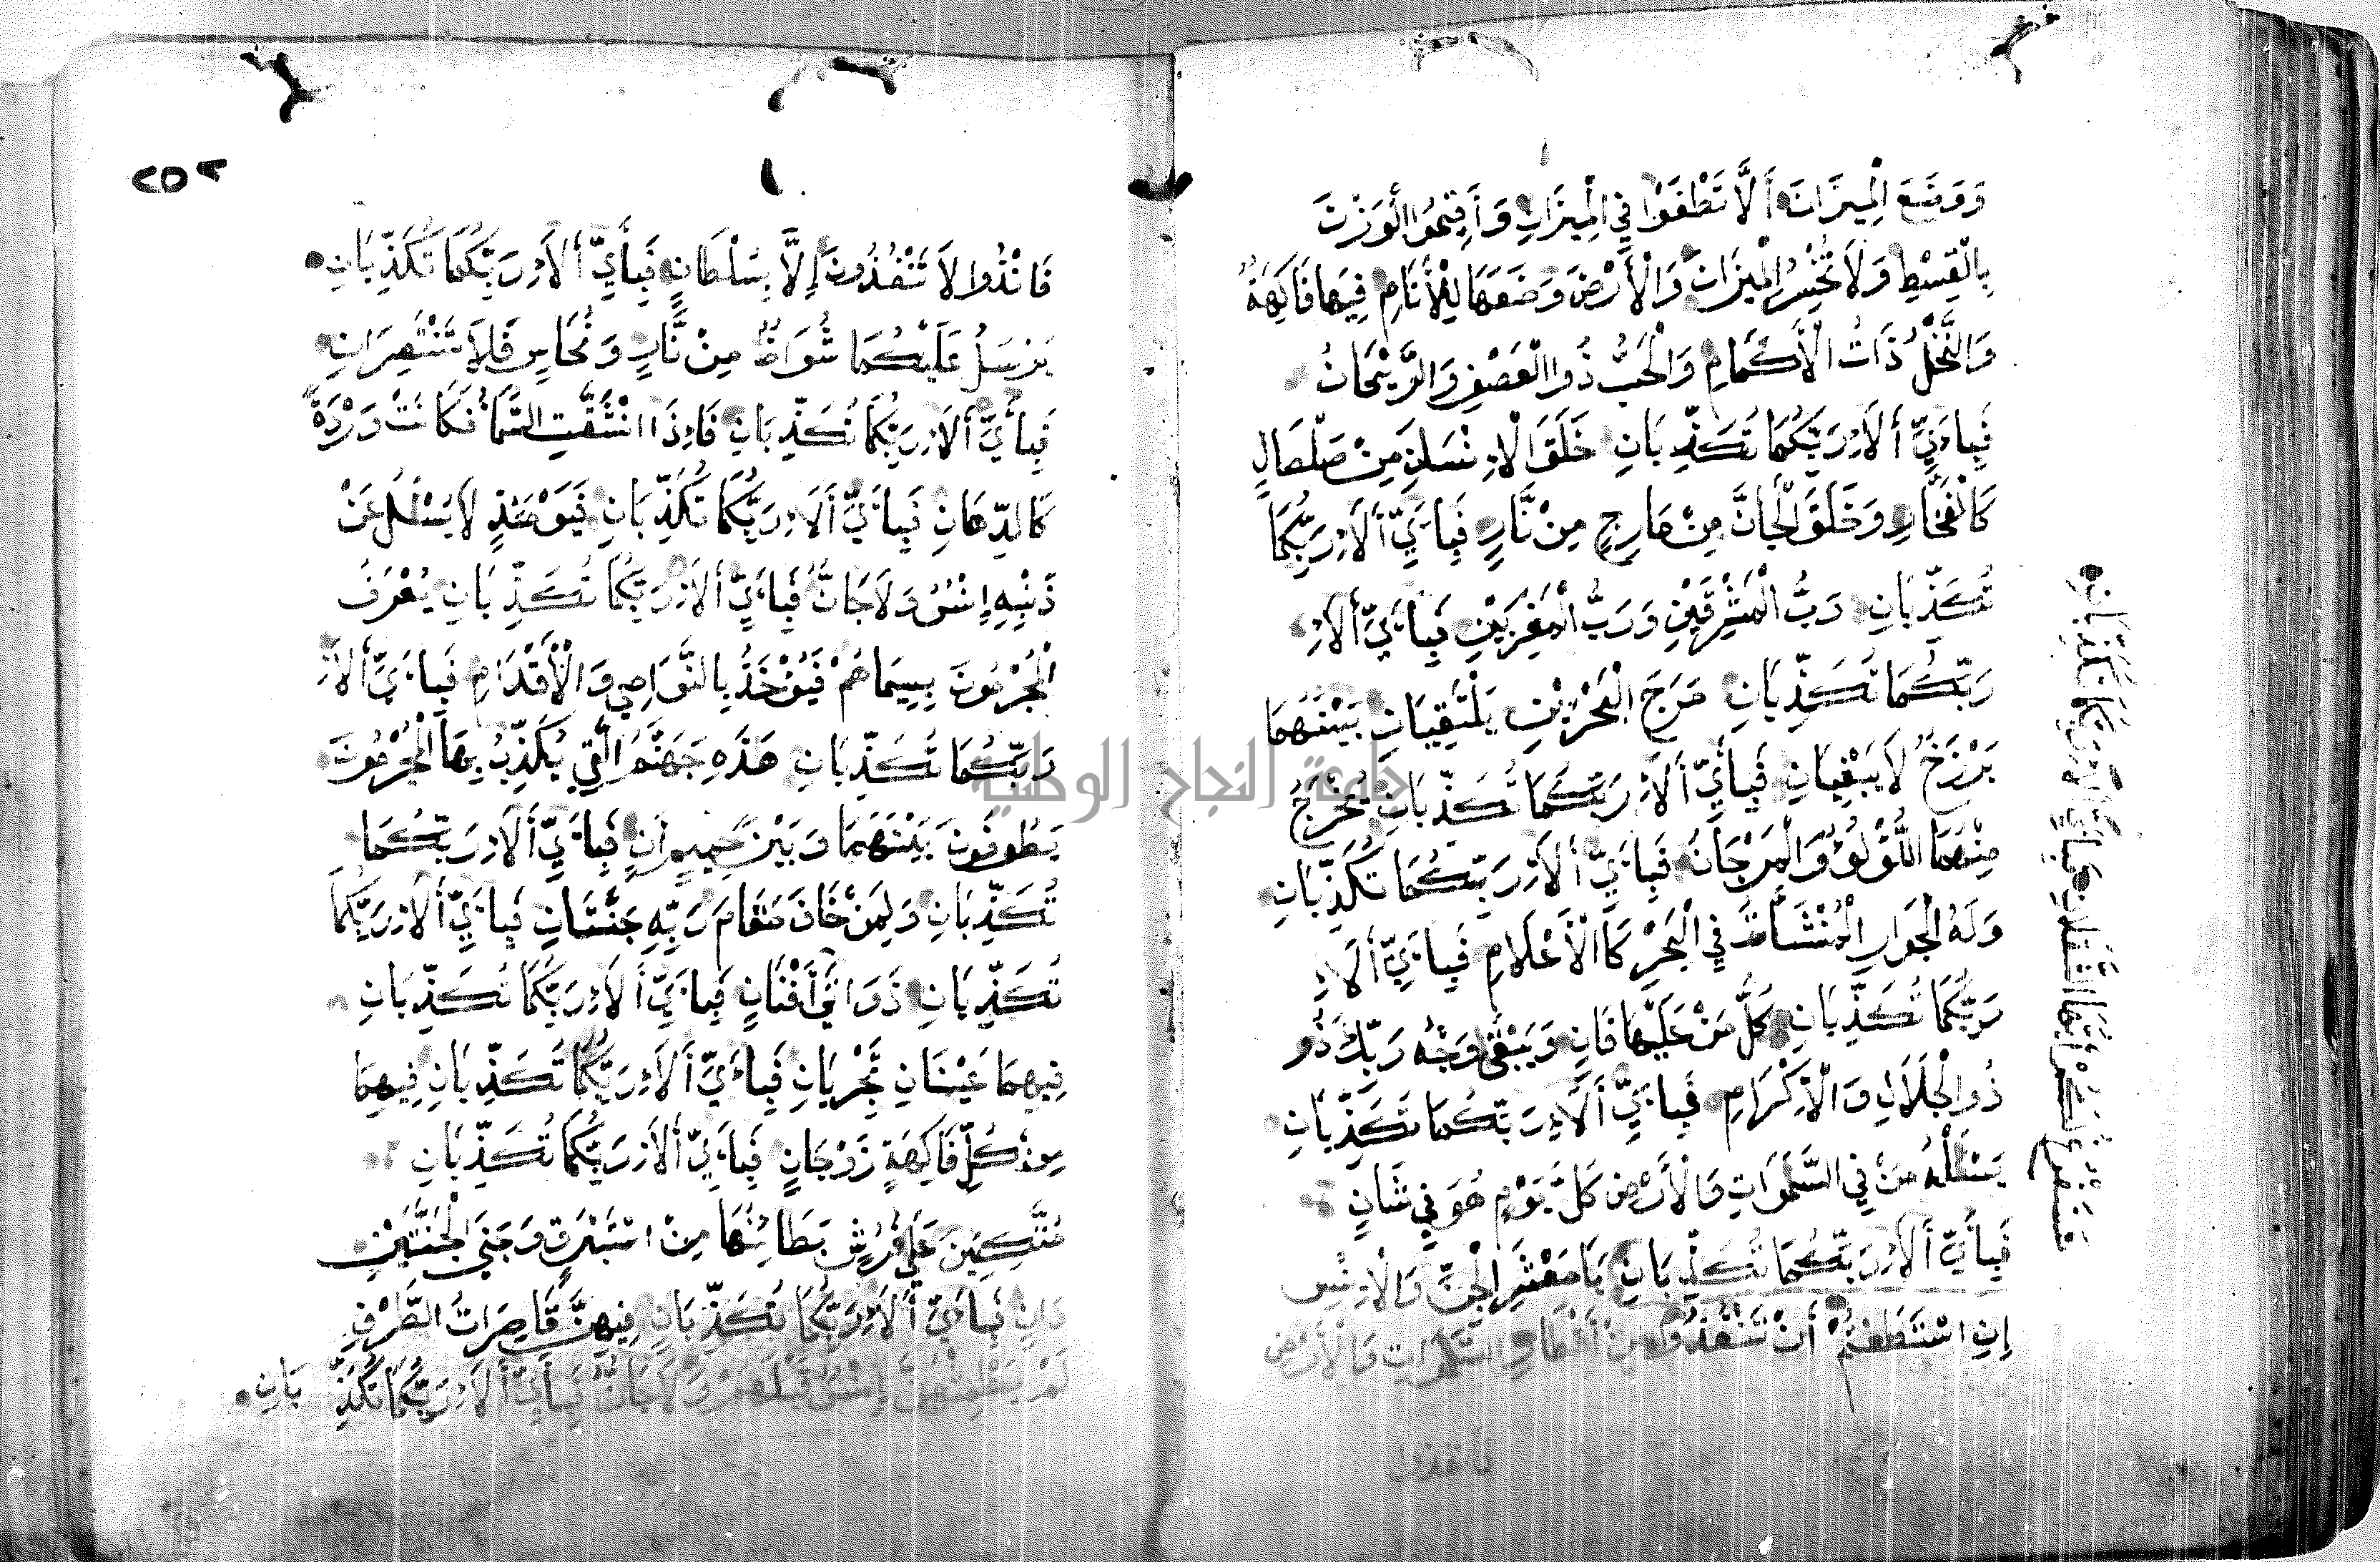 وَوَضَعَ الْمِيزَانَ أَلَّا تَطْغَوْا فِي الْمِيزَانِ وَأَقِيمُوا الْوَزْنَ
بِالْقِسْطِ وَلَا تُخْسِرُ الْمِيزَانَ وَالْأَرْضَ وَضَعَهَا لِلْأَنَامِ فِيهَا فَاكِهَةٌ
وَالنَّخْلُ ذَاتُ الْأَكْمَامِ وَالْحَبُّ ذُو الْعَصْفِ وَالرَّيْحَانُ
فَبِأَيِّ أَلَاءِ رَبِّكُمَا تُكَذِّبَانِ خَلَقَ الْإِنْسَانَ مِنْ صَلْصَالٍ
كَالْفَخَّارِ وَخَلَقَ الْجَانَّ مِنْ مَارِجٍ مِنْ نَّارٍ فَبِأَيِّ أَلَاءِ رَبِّكُمَا
تُكَذِّبَانِ رَبُّ الْمَشْرِقَيْنِ وَرَبُّ الْمَغْرِبَيْنِ فَبِأَيِّ أَلَاءِ
رَبِّكُمَا تُكَذِّبَانِ مَرَجَ الْبَحْرَيْنِ يَلْتَقِيَانِ بَيْنَهُمَا
بَرْزَخٌ لَا يَبْغِيَانِ فَبِأَيِّ أَلَاءِ رَبِّكُمَا تُكَذِّبَانِ يَخْرُجُ
مِنْهُمَا اللُّؤْلُؤُ وَالْمَرْجَانُ فَبِأَيِّ أَلَاءِ رَبِّكُمَا تُكَذِّبَانِ
وَلَهُ الْجَوَارِ الْمُنْشَأَتُ فِي الْبَحْرِ كَالْأَعْلَامِ فَبِأَيِّ أَلَاءِ
رَبِّكُمَا تُكَذِّبَانِ كُلُّ مَنْ عَلَيْهَا فَانٍ وَيَبْقَى وَجْهُ رَبِّكَ ذُو
ذُو الْجَلَالِ وَالْإِكْرَامِ فَبِأَيِّ أَلَاءِ رَبِّكُمَا تُكَذِّبَانِ
يَسْئَلُهُ مَنْ فِي السَّمَوَاتِ وَالْأَرْضِ كُلَّ يَوْمٍ هُوَ فِي شَانٍ
فَبِأَيِّ أَلَاءِ رَبِّكُمَا تُكَذِّبَانِ يَا مَعْشَرَ الْجِنِّ وَالْإِنْسِ
إِنِ اسْتَطَعْتُمْ أَنْ تَنْفُذُوا مِنْ أَقْطَارِ السَّمَوَاتِ وَالْأَرْضِ
فانفذوا
سَنَفْرُغُ لَكُمْ أَيُّهَا الثَّقَلَانِ فَبِأَيِّ أَلَاءِ رَبِّكُمَا تُكَذِّبَانِ
٢٥٢
فَانْفُذُوا لَا تَنْفُذُونَ إِلَّا بِسُلْطَانٍ فَبِأَيِّ أَلَاءِ رَبِّكُمَا تُكَذِّبَانِ
يُرْسَلُ عَلَيْكُمَا شُوَاظٌ مِنْ نَّارٍ وَنُحَاسٍ فَلَا تَنْتَصِرَانِ
فَبِأَيِّ أَلَاءِ رَبِّكُمَا تُكَذِّبَانِ فَإِذَا انْشَقَّتِ السَّمَاءُ فَكَانَتْ وَرْدَةً
كَالدِّهَانِ فَبِأَيِّ أَلَاءِ رَبِّكُمَا تُكَذِّبَانِ فَيَوْمَئِذٍ لَا يُسْئَلُ عَنْ
ذَنْبِهِ إِنْسٌ وَلَا جَانٌّ فَبِأَيِّ أَلَاءِ رَبِّكُمَا تُكَذِّبَانِ يُعْرَفُ
الْمُجْرِمُونَ بِسِيمَاهُمْ فَيُؤْخَذُ بِالنَّوَاصِي وَالْأَقْدَامِ فَبِأَيِّ أَلَاءِ
رَبِّكُمَا تُكَذِّبَانِ هَذِهِ جَهَنَّمُ الَّتِي يُكَذِّبُ بِهَا الْمُجْرِمُونَ
يَطُوفُونَ بَيْنَهَمَا وَبَيْنَ حَمِيمٍ أَنٍ فَبِأَيِّ أَلَاءِ رَبِّكُمَا
تُكَذِّبَانِ وَلِمَنْ خَافَ مَقَامَ رَبِّهِ جَنَّتَانِ فَبِأَيِّ أَلَاءِ رَبِّكُمَا
تُكَذِّبَانِ ذَوَاتَي أَفْنَانٍ فَبِأَيِّ أَلَاءِ رَبِّكُمَا تُكَذِّبَانِ
فِيهِمَا عَيْنَانِ تَجْرِيَانِ فَبِأَيِّ أَلَاءِ رَبِّكُمَا تُكَذِّبَانِ فِيهِمَا
مِنْ كُلِّ فَاكِهَةٍ زَوْجَانِ فَبِأَيِّ أَلَاءِ رَبِّكُمَا تُكَذِّبَانِ
مُتَّكِئِينَ عَلَى فُرُشٍ بَطَائِنُهَا مِنْ اسْتَبْرَقٍ وَجَنَى الْجَنَّتَيْنِ
دَانٍ فَبِأَيِّ أَلَاءِ رَبِّكُمَا تُكَذِّبَانِ فِيهِنَّ قَاصِرَاتُ الطَّرْفِ
لَمْ يَطْمِثْهُنَّ إِنْسٌ قَبْلَهُمْ وَلَا جَانٌّ فَبِأَيِّ أَلَاءِ رَبِّكُمَا تُكَذِّبَانِ
جامعة النجاح الوطنية